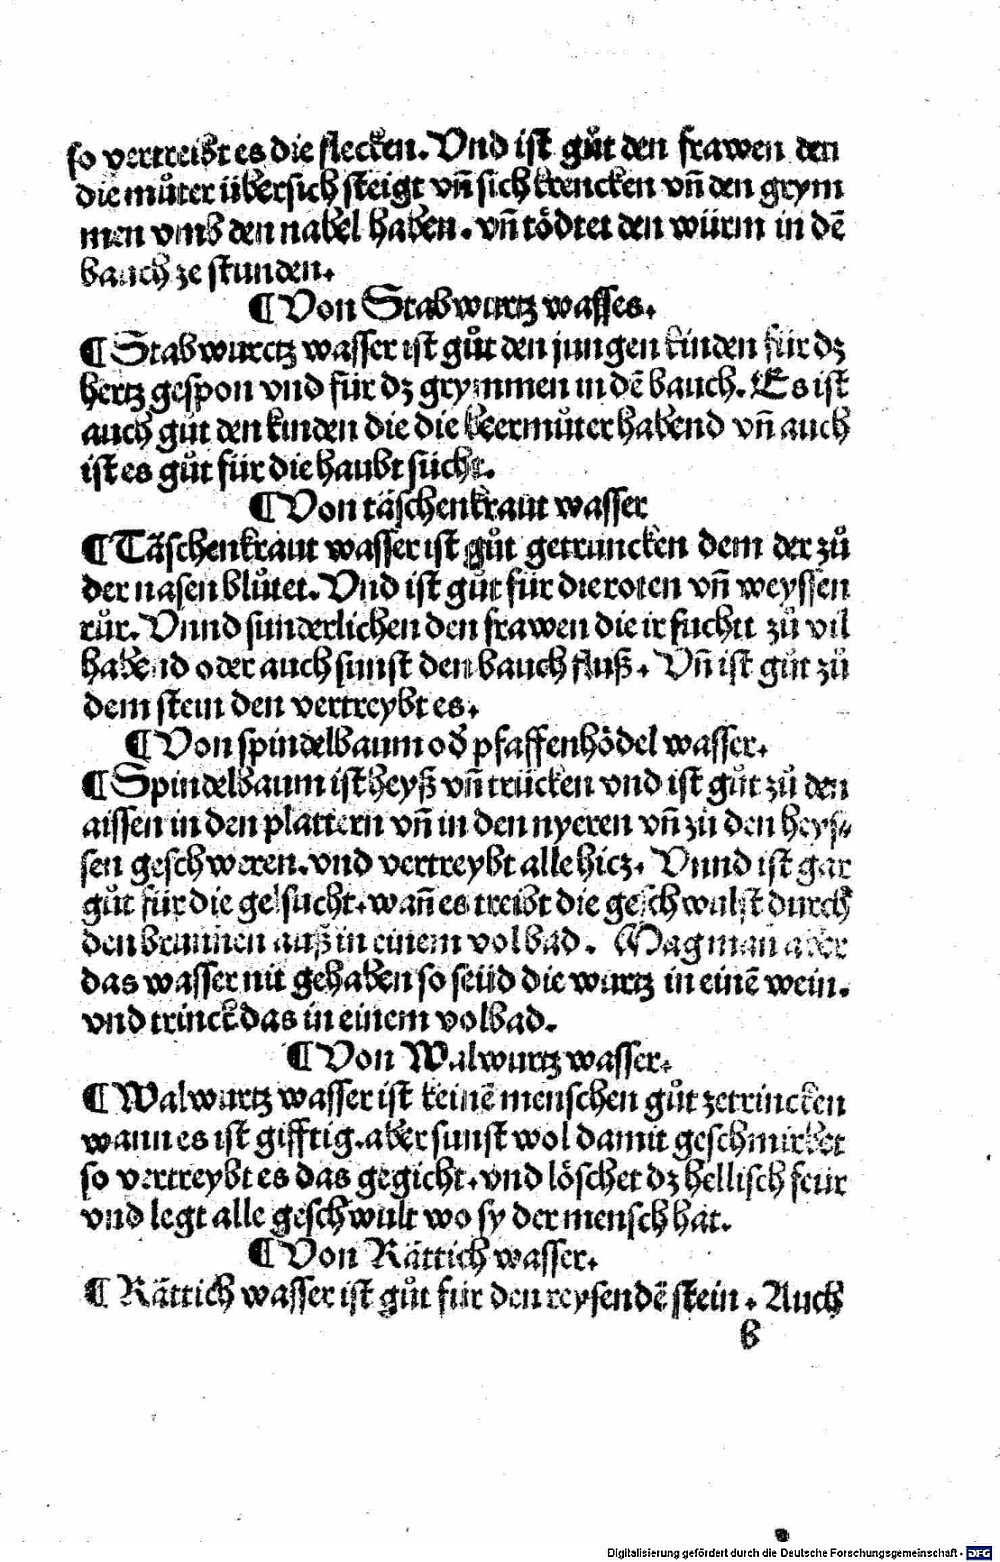 so vertreibt es die flecken. Vnd ist gůt den frawen den
die můter übersich steigt vñ sich krencken vñ den grym
men vmb den nabel haben. vñ tödtet den würm in dē
bauch ze stunden.
¶ Von Stabwurtz wasses.
¶ Stabwurctz wasser ist gůt den jungen kinden für dz
hertz gespon vnd für dz grymmen in dē bauch. Es ist
auch gůt den kinden die die beermůter habend vñ auch
ist es gůt für die haubt sücht.
¶ Von täschenkraut wasser
¶ Täschenkraut wasser ist gůt getruncken dem der zů
der nasen blůtet. Vnd ist gůt für die roten vñ weyssen
růr. Vnnd sunderlichen den frawen die ir fuchtt zů vil
habend oder auch sunst den bauch fluß. Vñ ist gůt zů
dem stein den vertreybt es.
¶ Von spindelbaum od̕ pfaffenhödel wasser.
¶ Spindelbaum ist heyß vñ trücken vnd ist gůt zů den
aissen in den plattern vñ in den nyeren vñ zů den heys⸗
sen geschweren. vnd vertreybt alle hicz. Vnnd ist gar
gůt für die gelsucht. wañ es treibt die geschwulst durch
den brunnen auß in einem volbad. Mag man aber
das wasser nit gehaben so seüd die wurtz in einē wein.
vnd trinck das in einem volbad.
¶ Von Walwurtz wasser.
¶ Walwurtz wasser ist keinē menschen gůt zetrincken
wann es ist gifftig. aber sunst wol damit geschmirbet
so vertreybt es das gegicht. vnd löschet dz hellisch feür
vnd legt alle geschwult wo sy der mensch hat.
¶ Von Rättich wasser.
¶ Rättich wasser ist gůt für den reysendē stein. Auch
b
Digitalisierung gefördert durch die Deutsche Forschungsgemeinschaft - DFG